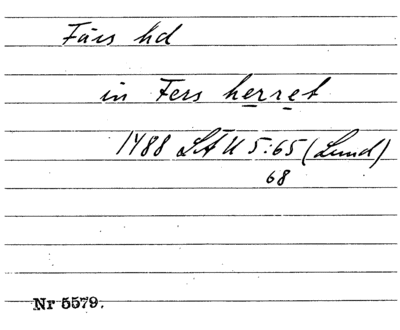 Färs hd
in Fers herret
1488 LÄU 5:65 (Lund)
68
Nr 5579.